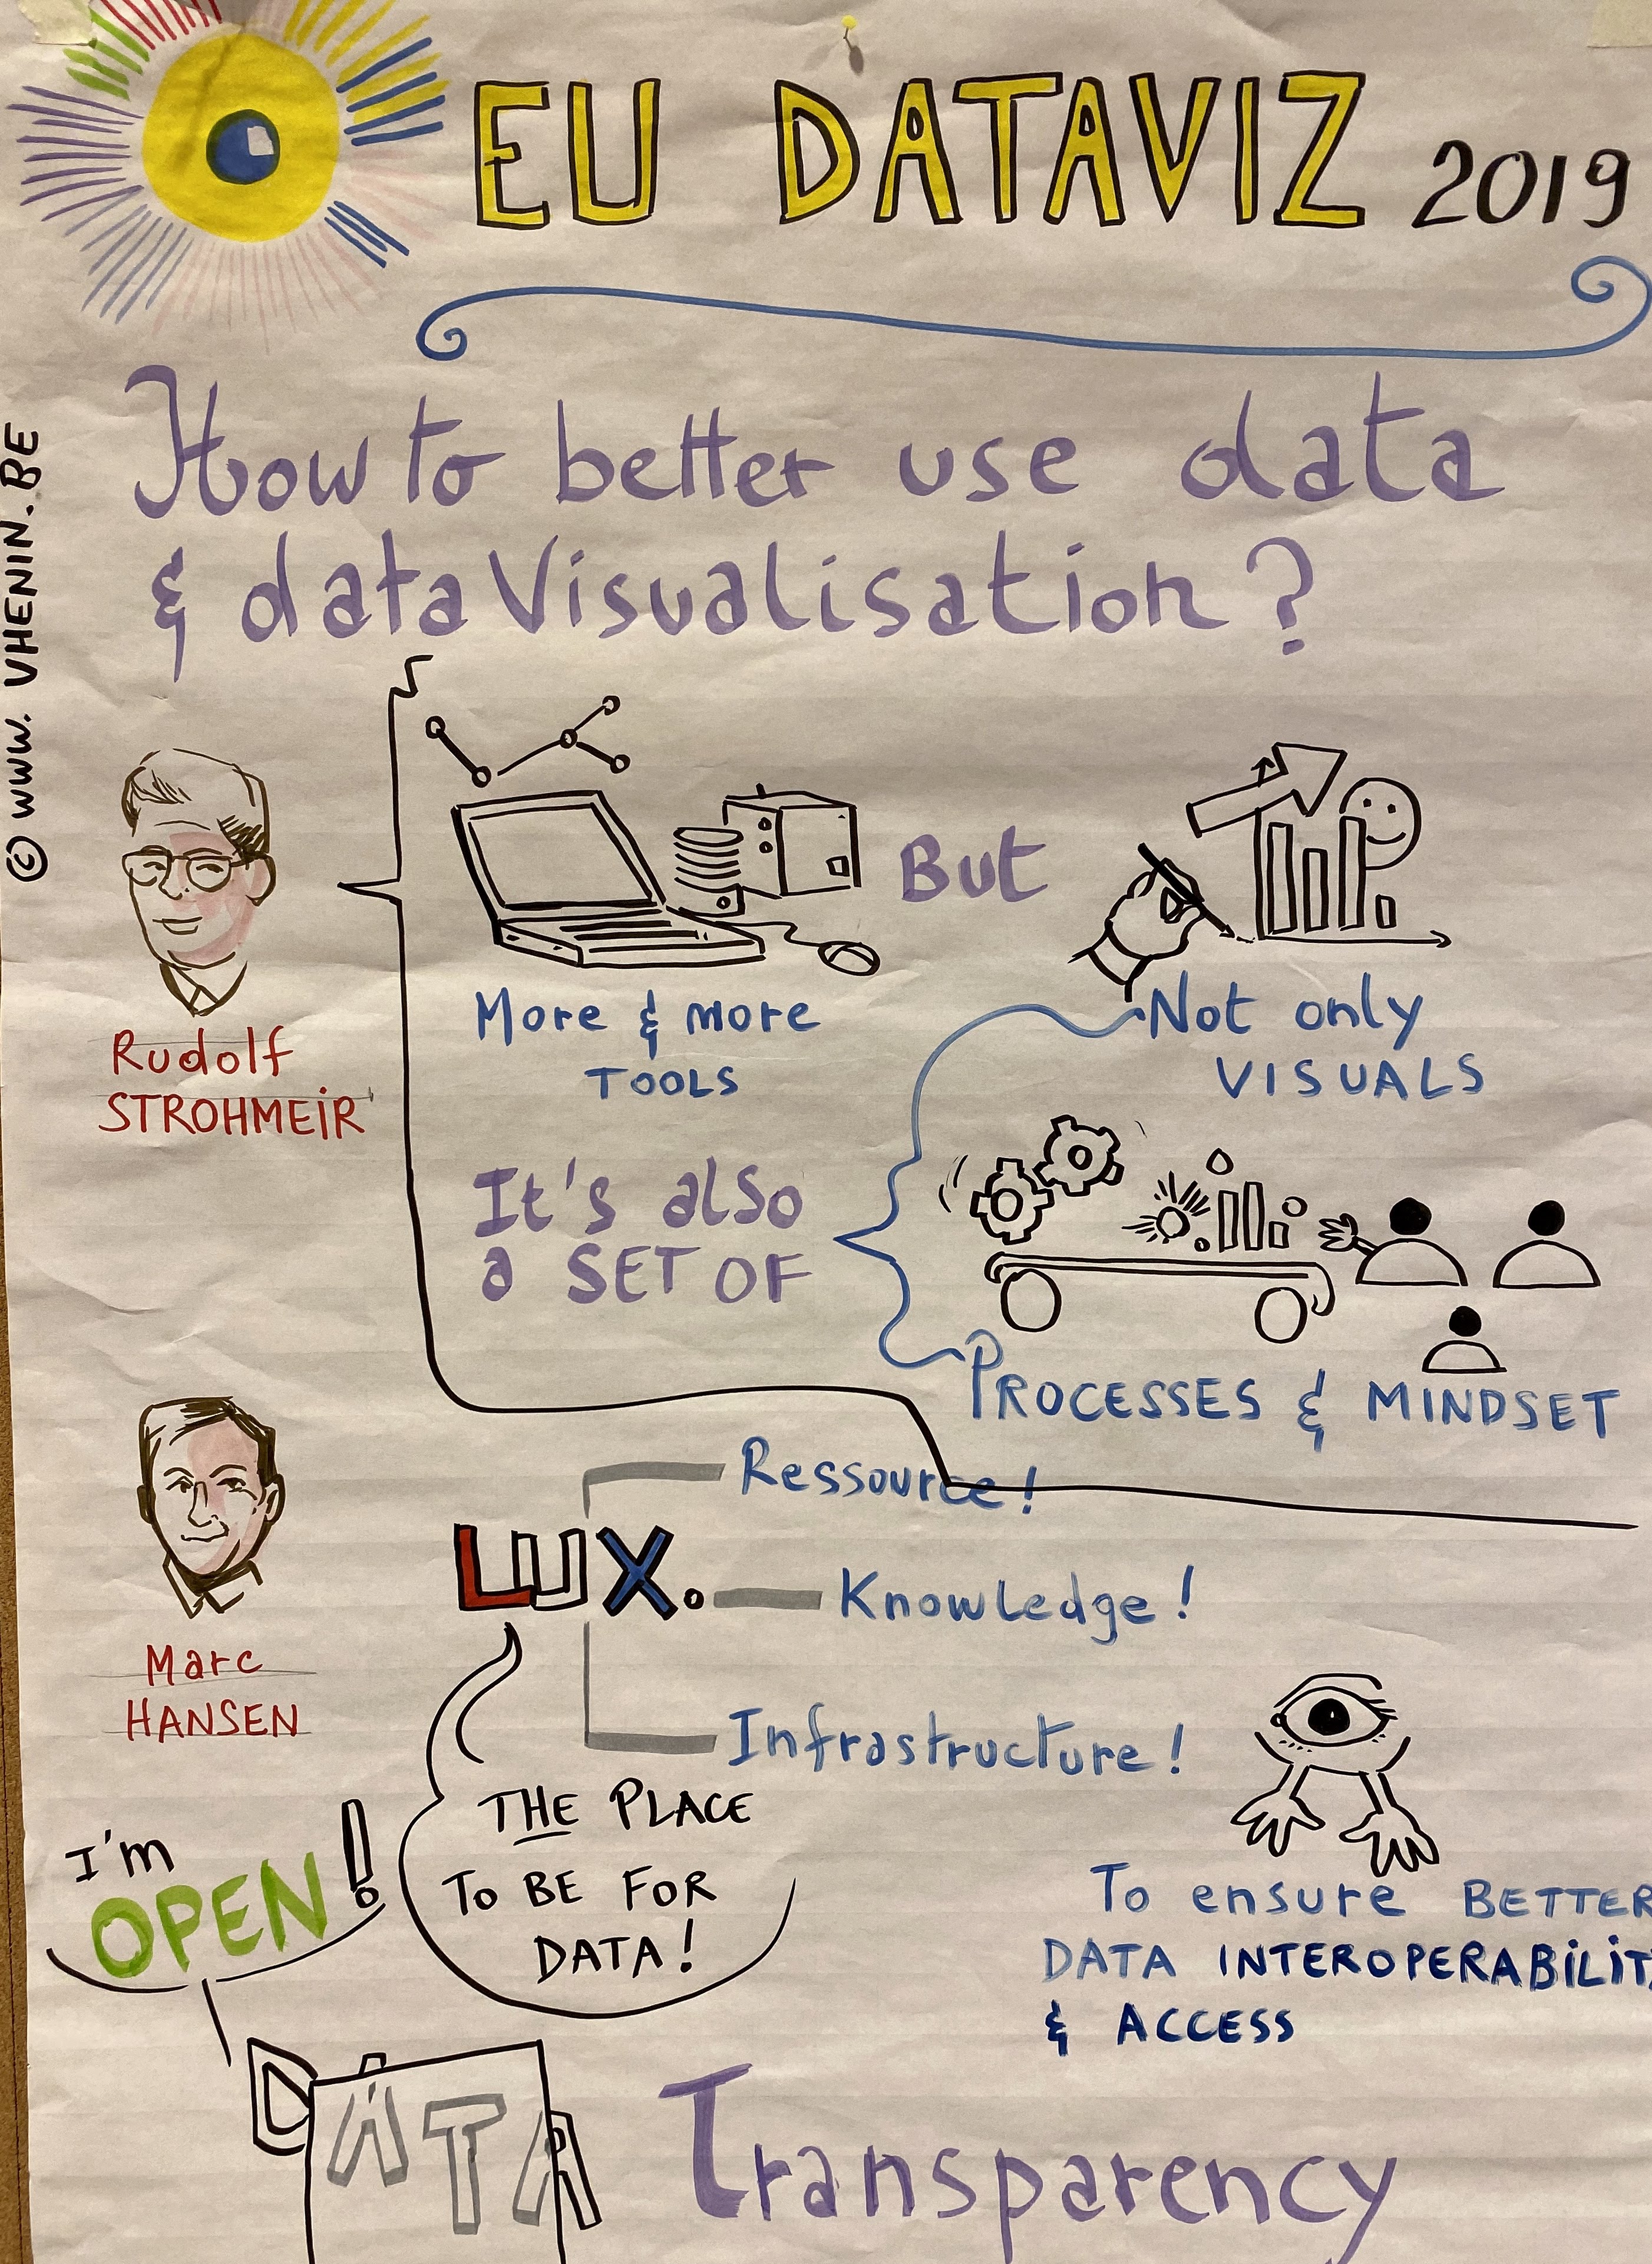 EU DATAVIZ 2019
© WWW. VHENIN.BE
How to better use data
& dataVisualisation ?
Rudolf
STROHMEIR
More & more
TOOLS
But
Not only
VISUALS
It's also
a SET OF
PROCESSES & MINDSET
Marc
HANSEN
LUX.
Ressource !
Knowledge !
Infrastructure !
THE PLACE
TO BE FOR
DATA !
I'm
OPEN !
To ensure BETTER
DATA INTEROPERABILIT
& ACCESS
DATA
Transparency